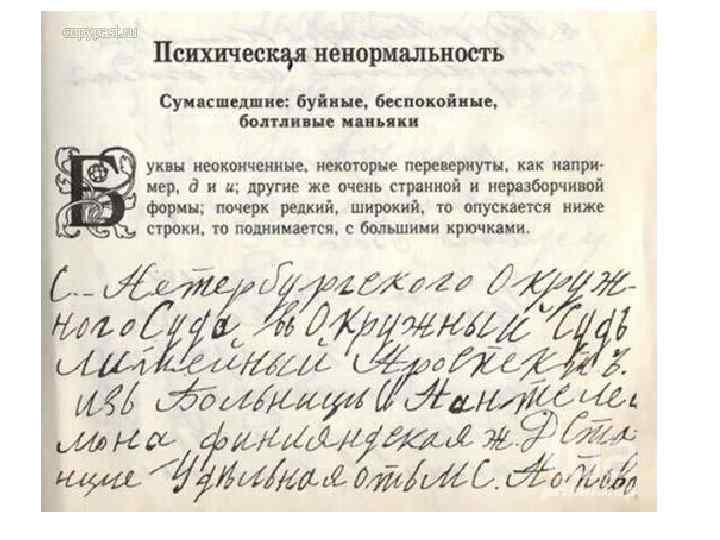 copypast.ru
Психическая ненормальность
Сумасшедшие: буйные, беспокойные,
болтливые маньяки
Буквы неоконченные, некоторые перевернуты, как напри-
мер, д и и; другие же очень странной и неразборчивой
формы; почерк редкий, широкий, то опускается ниже
строки, то поднимается, с большими крючками.
С.-Петербургского Окруж-
ного Суда въ Окружный Судъ
Литейный Проспектъ.
изъ Больницы Пантелей
мона финляндская ж. Д Ста
нцие Удельная отъ М С. Попова